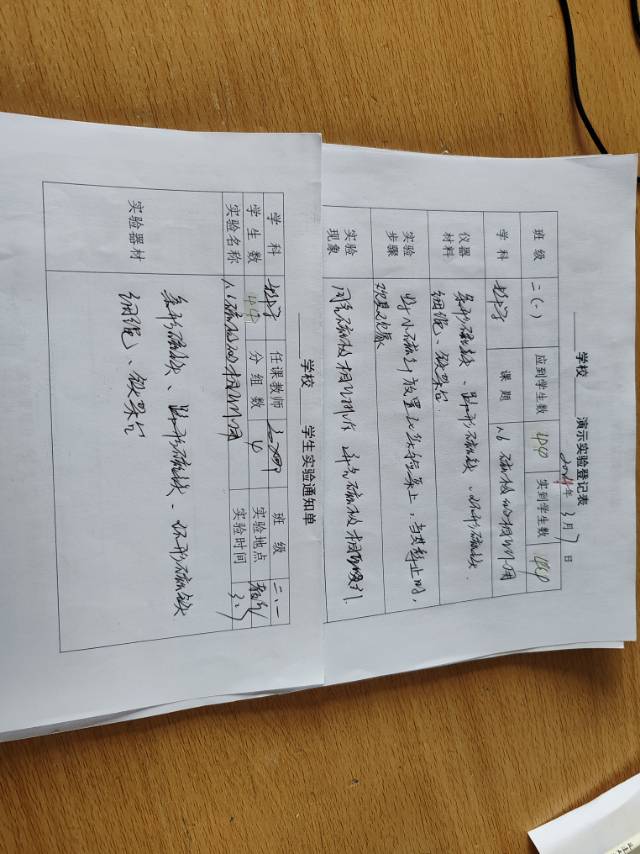 学校 演示实验登记表
2024年 3月7日
班级 二(一) 应到学生数 实到学生数
学科 科学 课题 1.6 磁极的相互作用
仪器材料 条形磁铁、蹄形磁铁、环形磁铁、
细绳、铁架台
实验步骤 将小磁针放置在支架上,当其静止时,
实验现象 同名磁极相互排斥 异名磁极相互吸引.
学校 学生实验通知单
学科 科学 任课教师 班级 二.一
学生数 分组数 4 实验地点
实验名称 1.6 磁极的相互作用 实验时间 3.7
实验器材 条形磁铁、蹄形磁铁、环形磁铁
细绳、铁架台